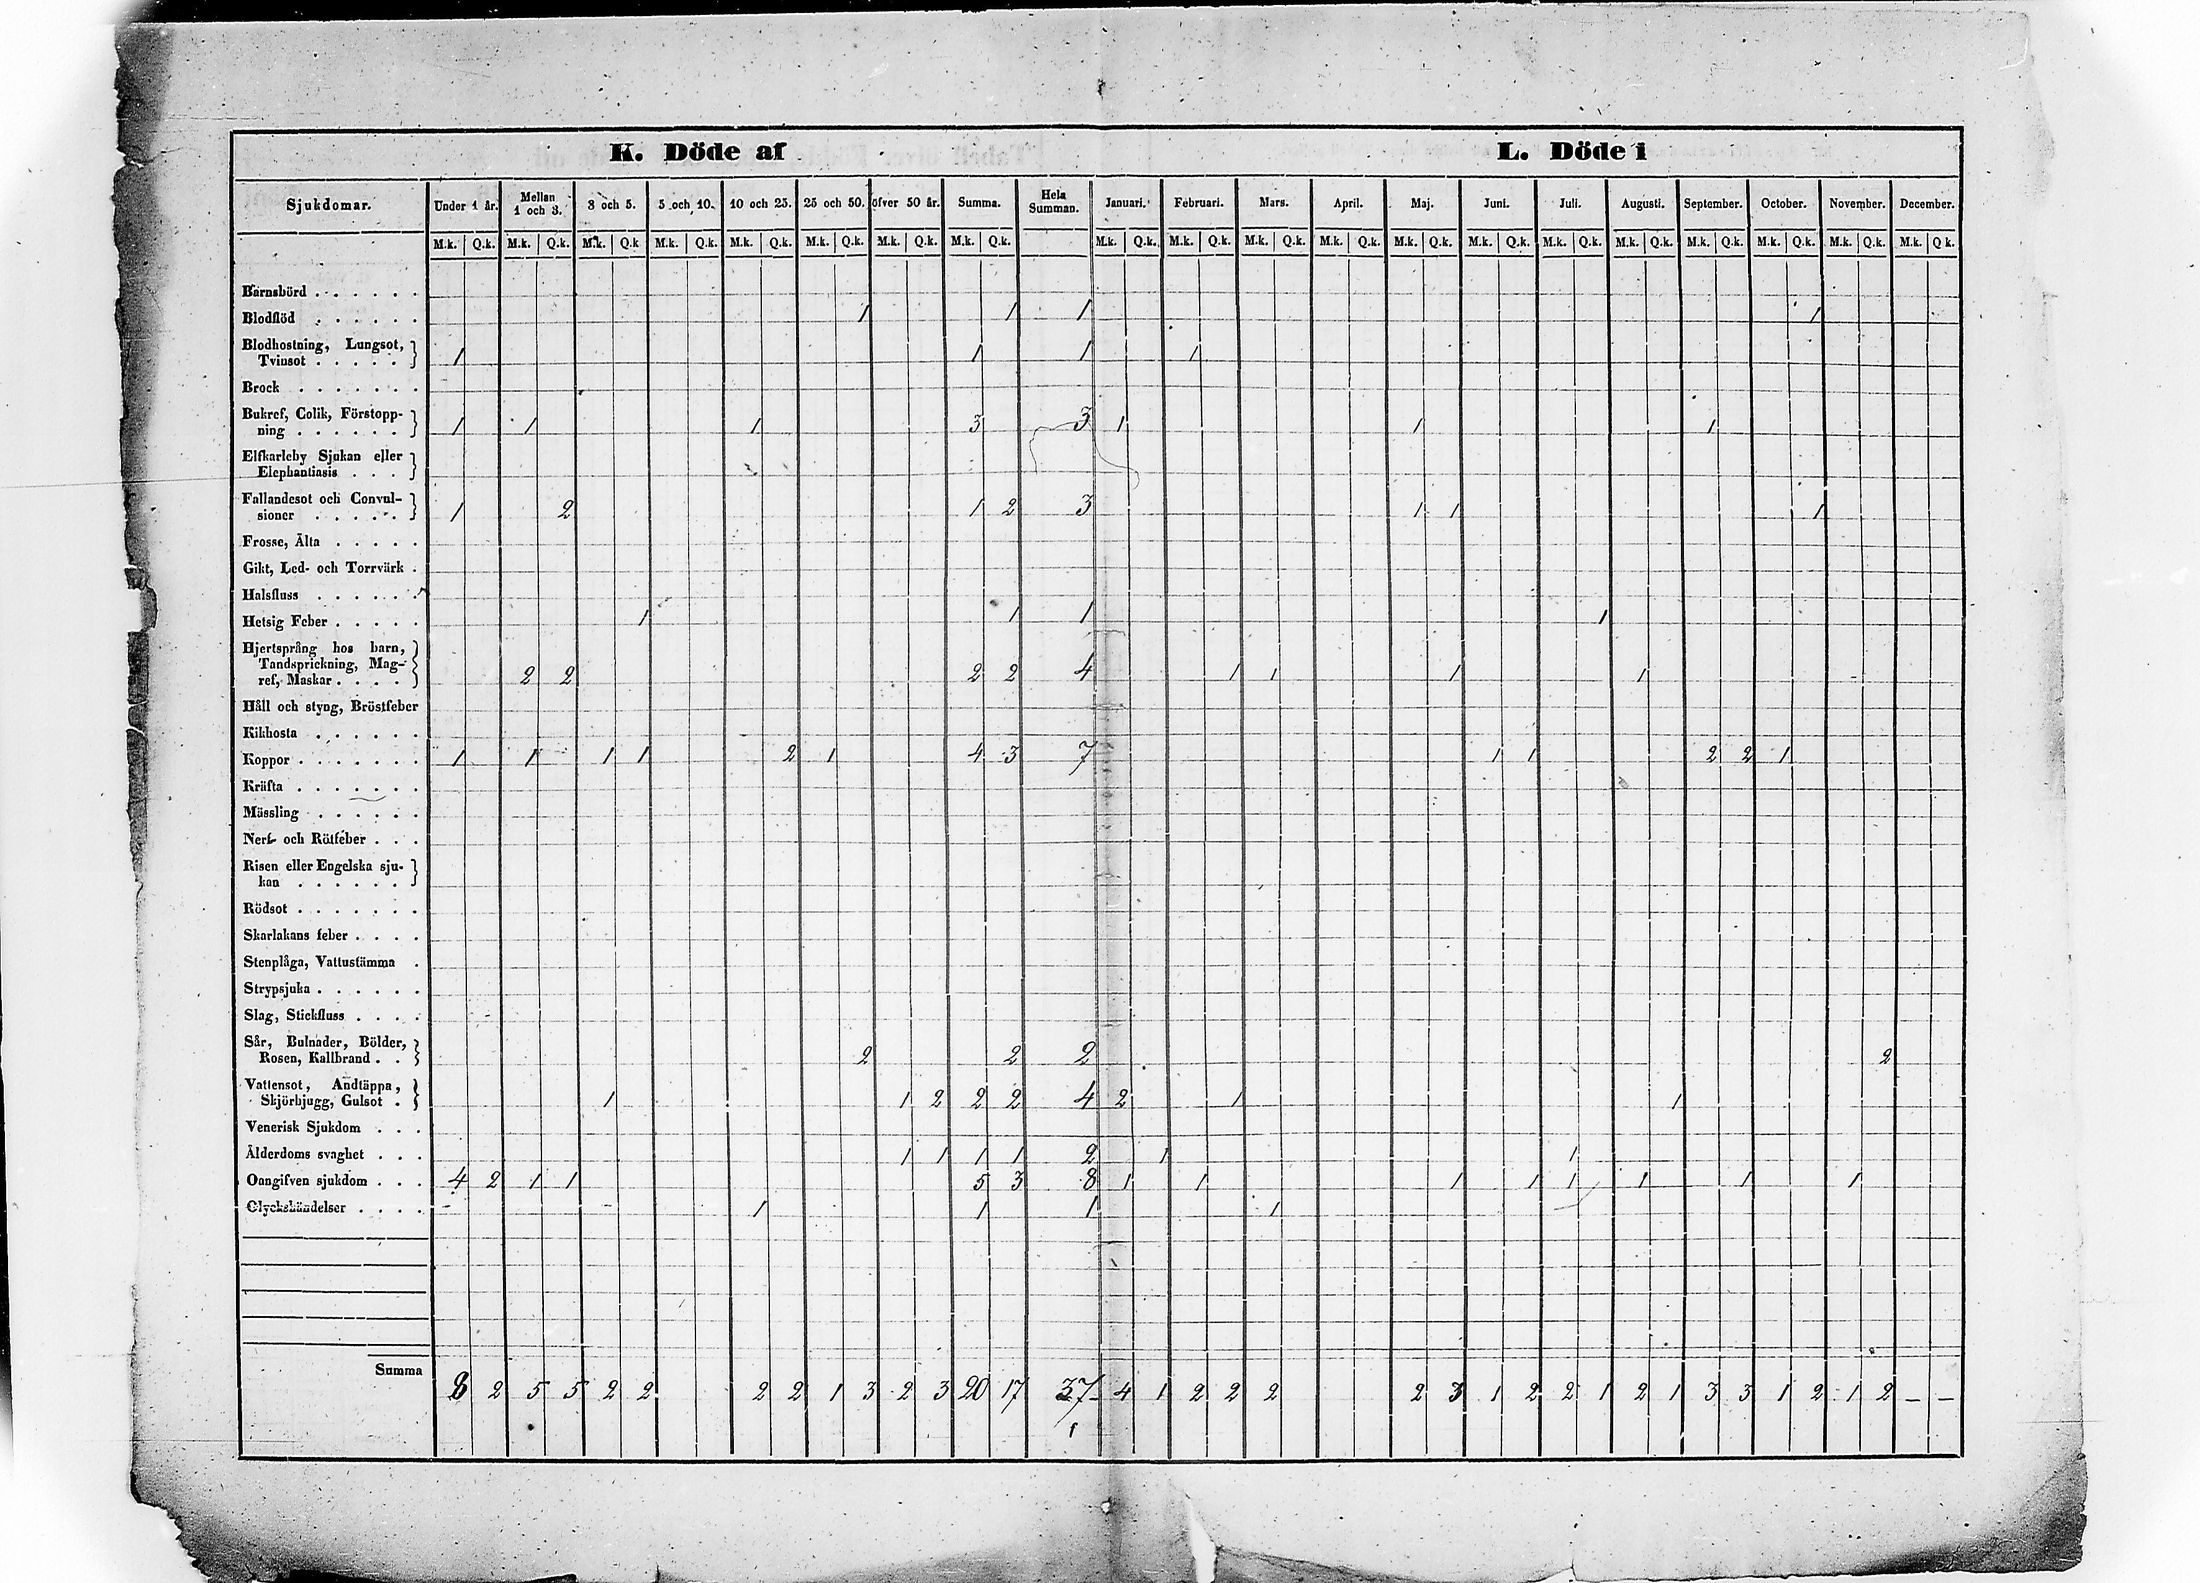 K. Döde af L. Döde i
Sjukdomar. Under 1 år. Mellan 1 och 3. 3 och 5. 5 och 10. 10 och 25. 25 och 50. öfver 50 år. Summa. Hela Summan. Januari. Februari. Mars. April. Maj. Juni. Juli. Augusti. September. October. November. December.
M.k. Q.k. M.k. Q.k. M.k. Q.k M.k. Q.k. M.k. Q.k. M.k. Q.k. M.k. Q.k. M.k. Q.k. M.k. Q.k. M.k. Q.k. M.k. Q.k. M.k. Q.k. M.k. Q.k. M.k. Q.k. M.k. Q.k. M.k. Q.k. M.k. Q.k. M.k. Q.k. M.k. Q.k. M.k. Q k.
Barnsbörd . . . . . .
Blodflöd . . . . . . 1 1 1 1
Blodhostning, Lungsot,
Tvinsot . . . . . 1 1 1 1
Brock . . . . . . .
Bukref, Colik, Förstopp-
ning . . . . . . 1 1 1 3 3 1 1 1
Elfkarleby Sjukan eller
Elephantiasis . . .
Fallandesot och Convul-
sioner . . . . . 1 2 1 2 3 1 1 1
Frosse, Älta . . . . .
Gikt, Led- och Torrvärk .
Halsfluss . . . . . .
Hetsig Feber . . . . . 1 1 1 1
Hjertsprång hos barn,
Tandsprickning, Mag-
ref, Maskar . . . . 2 2 2 2 4 1 1 1 1
Håll och styng, Bröstfeber
Kikhosta . . . . . .
Koppor . . . . . . . 1 1 1 1 2 1 4 3 7 1 1 2 2 1
Kräfta . . . . . . .
Mässling . . . . . .
Nerf- och Rötfeber . . .
Risen eller Engelska sju-
kan . . . . . .
Rödsot . . . . . . .
Skarlakans feber . . . .
Stenplåga, Vattustämma .
Strypsjuka . . . . . .
Slag, Stickfluss . . . .
Sår, Bulnader, Bölder,
Rosen, Kallbrand . . 2 2 2 2
Vattensot, Andtäppa,
Skjörbjugg, Gulsot . 1 1 2 2 2 4 2 1 1
Venerisk Sjukdom . . .
Ålderdoms svaghet . . . 1 1 1 1 2 1 1
Oangifven sjukdom . . . 4 2 1 1 5 3 8 1 1 1 1 1 1 1 1
Olyckshändelser . . . . 1 1 1 1
Summa
8 2 5 5 2 2 2 2 1 3 2 3 20 17 37 4 1 2 2 2 2 3 1 2 2 1 2 1 3 3 1 2 1 2 – –